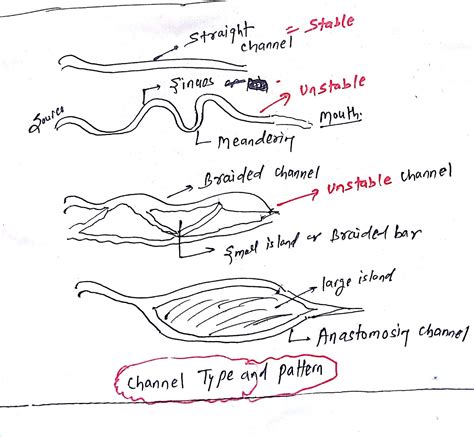 Straight = Stable
channel
Sinuos or
Unstable
Source
Mouth.
Meandering
Braided channel
Unstable channel
Small island or Braided bar
large island
Anastomosin channel
Channel Type and pattern